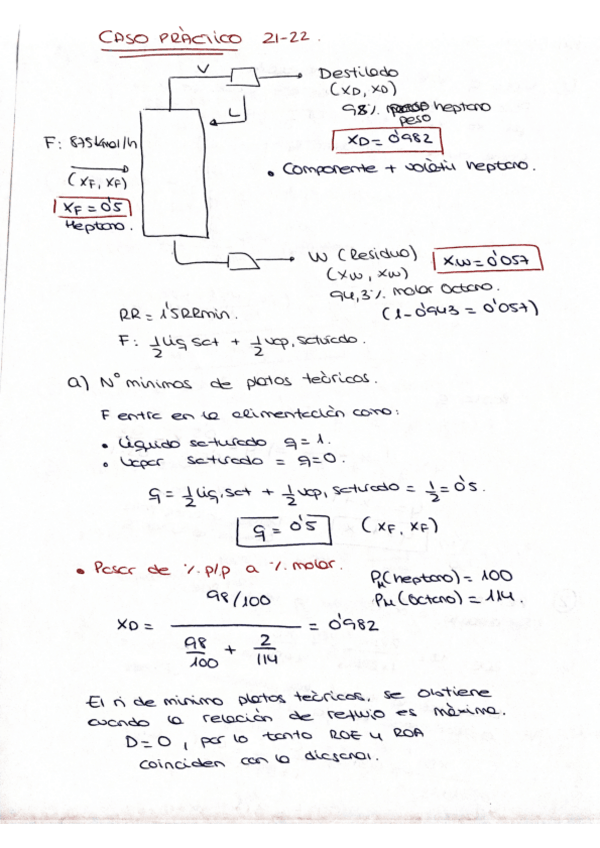 CASO PRÀCTICO 21-22.
V
Destilado
(XD, XD)
98% heptano
peso
L
F: 875 kmol/h
XD = 0'982
(XF, XF)
• Componente + volàtil heptano.
XF = 0'5
Heptano.
W (Residuo)
XW = 0'057
(XW, XW)
94,3% molar Octano.
(1-0'943 = 0'057)
RR = 1'5 RRmin.
F: 1/2 Liq sat + 1/2 vap, saturado.
a) Nº minimos de platos teòricos.
F entra en la alimentaciòn como:
• Líquido saturado q = 1.
• Vapor saturado = q = 0.
q = 1/2 liq, sat + 1/2 vap, saturado = 1/2 = 0'5.
q = 0'5
(XF, XF)
• Pasar de %. p/p a %. molar.
PM (heptano) = 100
PM (Octano) = 114.
XD = (98/100) / (98/100 + 2/114) = 0'982
El n de minimo platos teòricos, se obtiene
cuando la relaciòn de reflujo es màxima.
D = 0, por lo tanto ROE y ROA
coinciden con la diagonal.